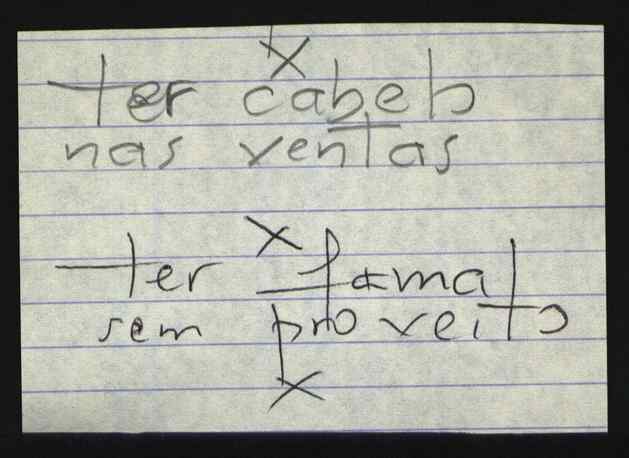 ter cabelo
nas ventas
ter fama
sem proveito